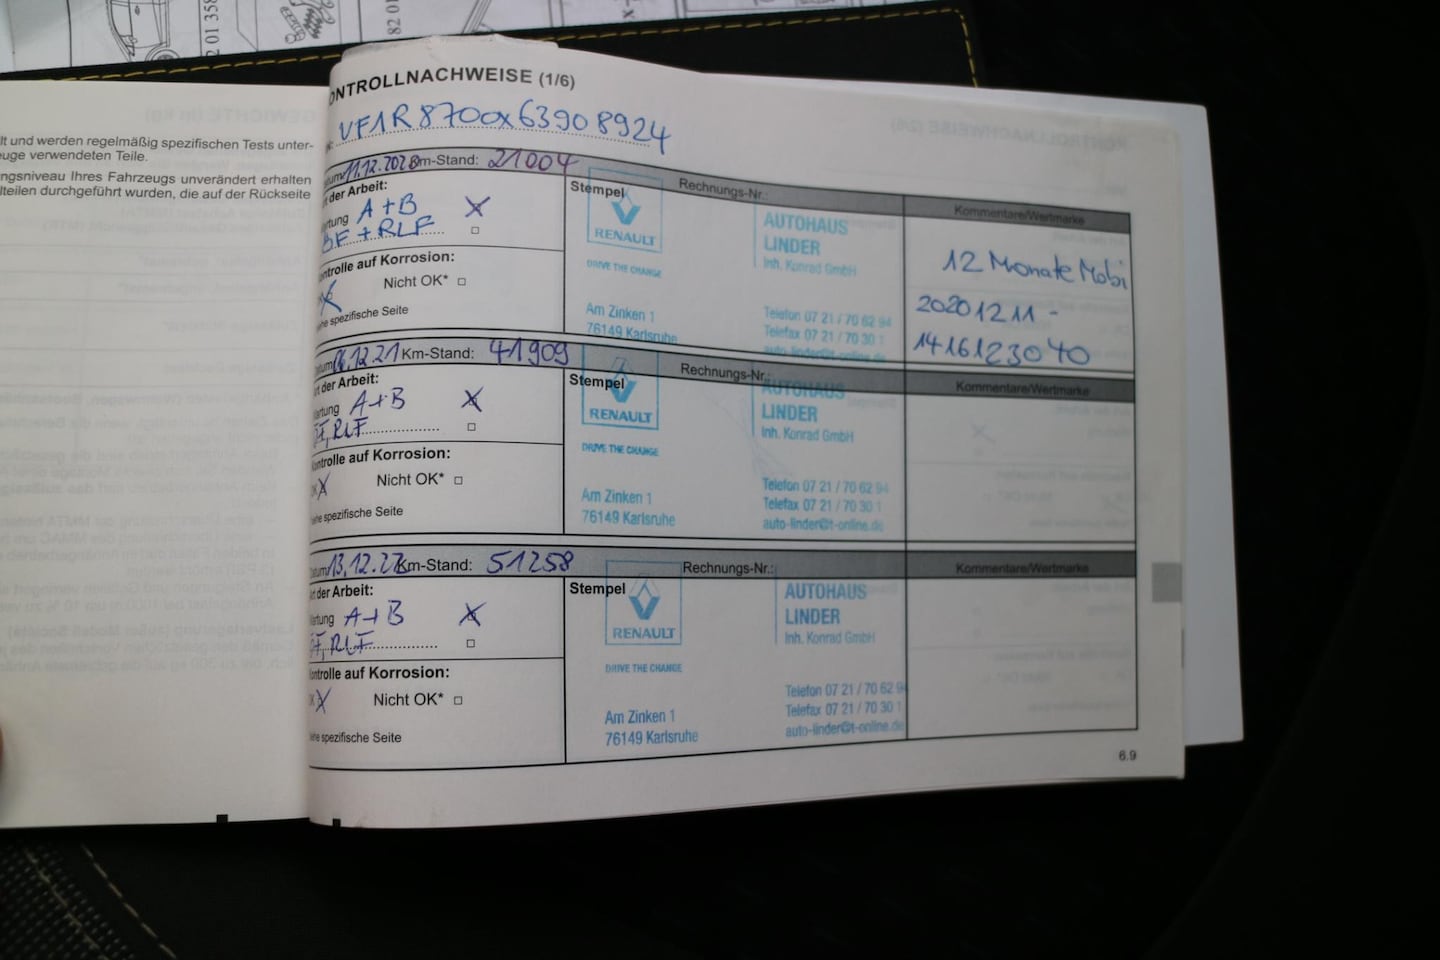 2 01 358
82 01
lt und werden regelmäßig spezifischen Tests unter-
euge verwendeten Teile.
ngsniveau Ihres Fahrzeugs unverändert erhalten
lteilen durchgeführt wurden, die auf der Rückseite
ONTROLLNACHWEISE (1/6)
VF1R8700x63908924
atum 11.12.2020 Km-Stand: 21004
Rechnungs-Nr.:
rt der Arbeit:
artung A+B
BF+RLF
ontrolle auf Korrosion:
Nicht OK*
ehe spezifische Seite
Stempel
RENAULT
DRIVE THE CHANGE
AUTOHAUS
LINDER
Inh. Konrad GmbH
Am Zinken 1
76149 Karlsruhe
Telefon 07 21 / 70 62 94
Telefax 07 21 / 70 30 1
auto-linder@t-online.de
Kommentare/Wertmarke
12 Monate Mobi
20201211-
1416123040
atum 06.12.21 Km-Stand: 41909
Rechnungs-Nr.:
rt der Arbeit:
artung A+B
BF, RLF
ontrolle auf Korrosion:
OK Nicht OK*
ehe spezifische Seite
Stempel
RENAULT
DRIVE THE CHANGE
AUTOHAUS
LINDER
Inh. Konrad GmbH
Am Zinken 1
76149 Karlsruhe
Telefon 07 21 / 70 62 94
Telefax 07 21 / 70 30 1
auto-linder@t-online.de
Kommentare/Wertmarke
Datum 13.12.22 Km-Stand: 51258
Rechnungs-Nr.:
rt der Arbeit:
artung A+B
BF, RLF
ontrolle auf Korrosion:
OK Nicht OK*
ehe spezifische Seite
Stempel
RENAULT
DRIVE THE CHANGE
AUTOHAUS
LINDER
Inh. Konrad GmbH
Am Zinken 1
76149 Karlsruhe
Telefon 07 21 / 70 62 9
Telefax 07 21 / 70 30 1
auto-linder@t-online.de
Kommentare/Wertmarke
6.9